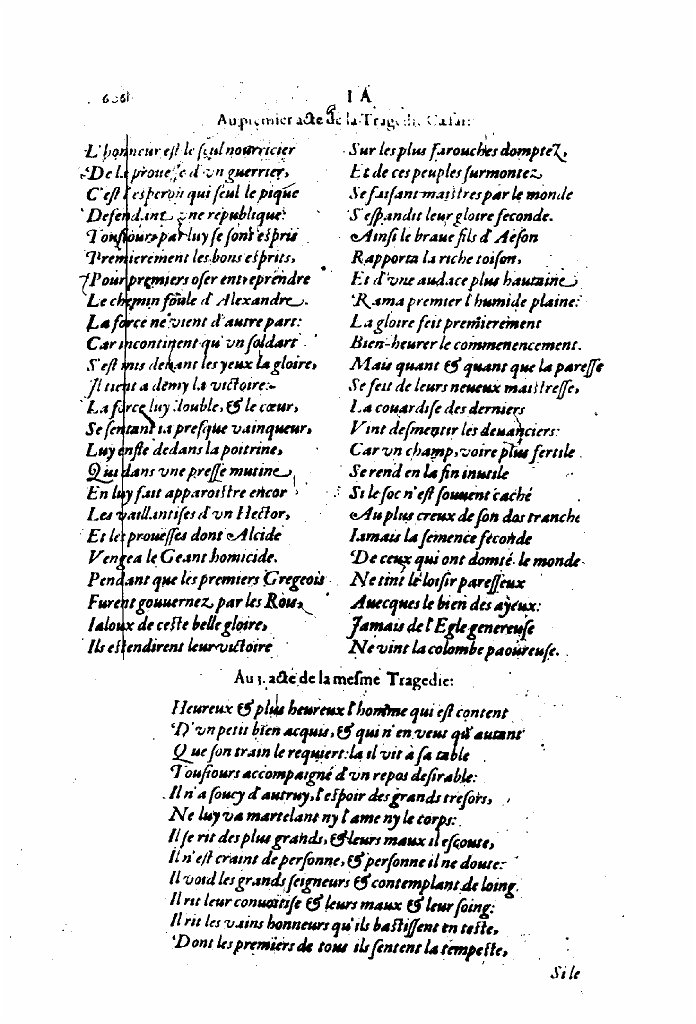 606
I A
Au premier acte de la Tragedie Cæsar:
L'honneur est le seul nourricier
De la prouesse d'un guerrier,
C'est l'esperon qui seul le pique
Defendant une republique:
Tousiours par luy se sont espris
Premierement les bons esprits,
Pour premiers oser entreprendre
Le chemin foule d'Alexandre.
La force ne vient d'autre part:
Car incontinent qu'un soldart
S'est mis devant les yeux la gloire,
Il tient a demy la victoire:
La force luy double, & le cœur,
Se sentant ia presque vainqueur,
Luy enfle dedans la poitrine,
Qui dans une presse mutine
En luy fait apparoistre encor
Les vaillantises d'un Hector,
Et les prouesses dont Alcide
Vengea le Geant homicide.
Pendant que les premiers Gregeois
Furent gouuernez par les Rois,
Ialoux de ceste belle gloire,
Ils estendirent leur victoire
Sur les plus farouches domptez,
Et de ces peuples surmontez
Se faisant maistres par le monde
S'espandit leur gloire feconde.
Ainsi le braue fils d'Aeson
Rapporta la riche toison,
Et d'vne audace plus hautaine
Rama premier l'humide plaine:
La gloire feit premierement
Bien-heurer le commencement.
Mais quant & quant que la paresse
Se feit de leurs neueux maistresse,
La couardise des derniers
Vint desmentir les deuanciers:
Car vn champ, voire plus fertile
Se rend en la fin inutile
Si le soc n'est souuent caché
Au plus creux de son dos tranche
Iamais la semence feconde
De ceux qui ont domté le monde
Ne tint le loisir paresseux
Auecques le bien des ayeux:
Jamais de l'Egle genereuse
Ne vint la colombe paoureuse.
Au 3. acte de la mesme Tragedie:
Heureux & plus heureux l'homme qui est content
D'vn petit bien acquis, & qui n'en veut qu'autant
Que son train le requiert: la il vit à sa table
Tousiours accompaigné d'vn repos desirable:
Il n'a soucy d'autruy, l'espoir des grands tresors,
Ne luy va martelant ny l'ame ny le corps:
Il se rit des plus grands, & leurs maux il escoute,
Il n'est craint de personne, & personne il ne doute:
Il void les grands seigneurs & contemplant de loing,
Il rit leur conuoitise & leurs maux & leur soing:
Il rit les vains honneurs qu'ils bastissent en teste,
Dont les premiers de tous ils sentent la tempeste,
Si le